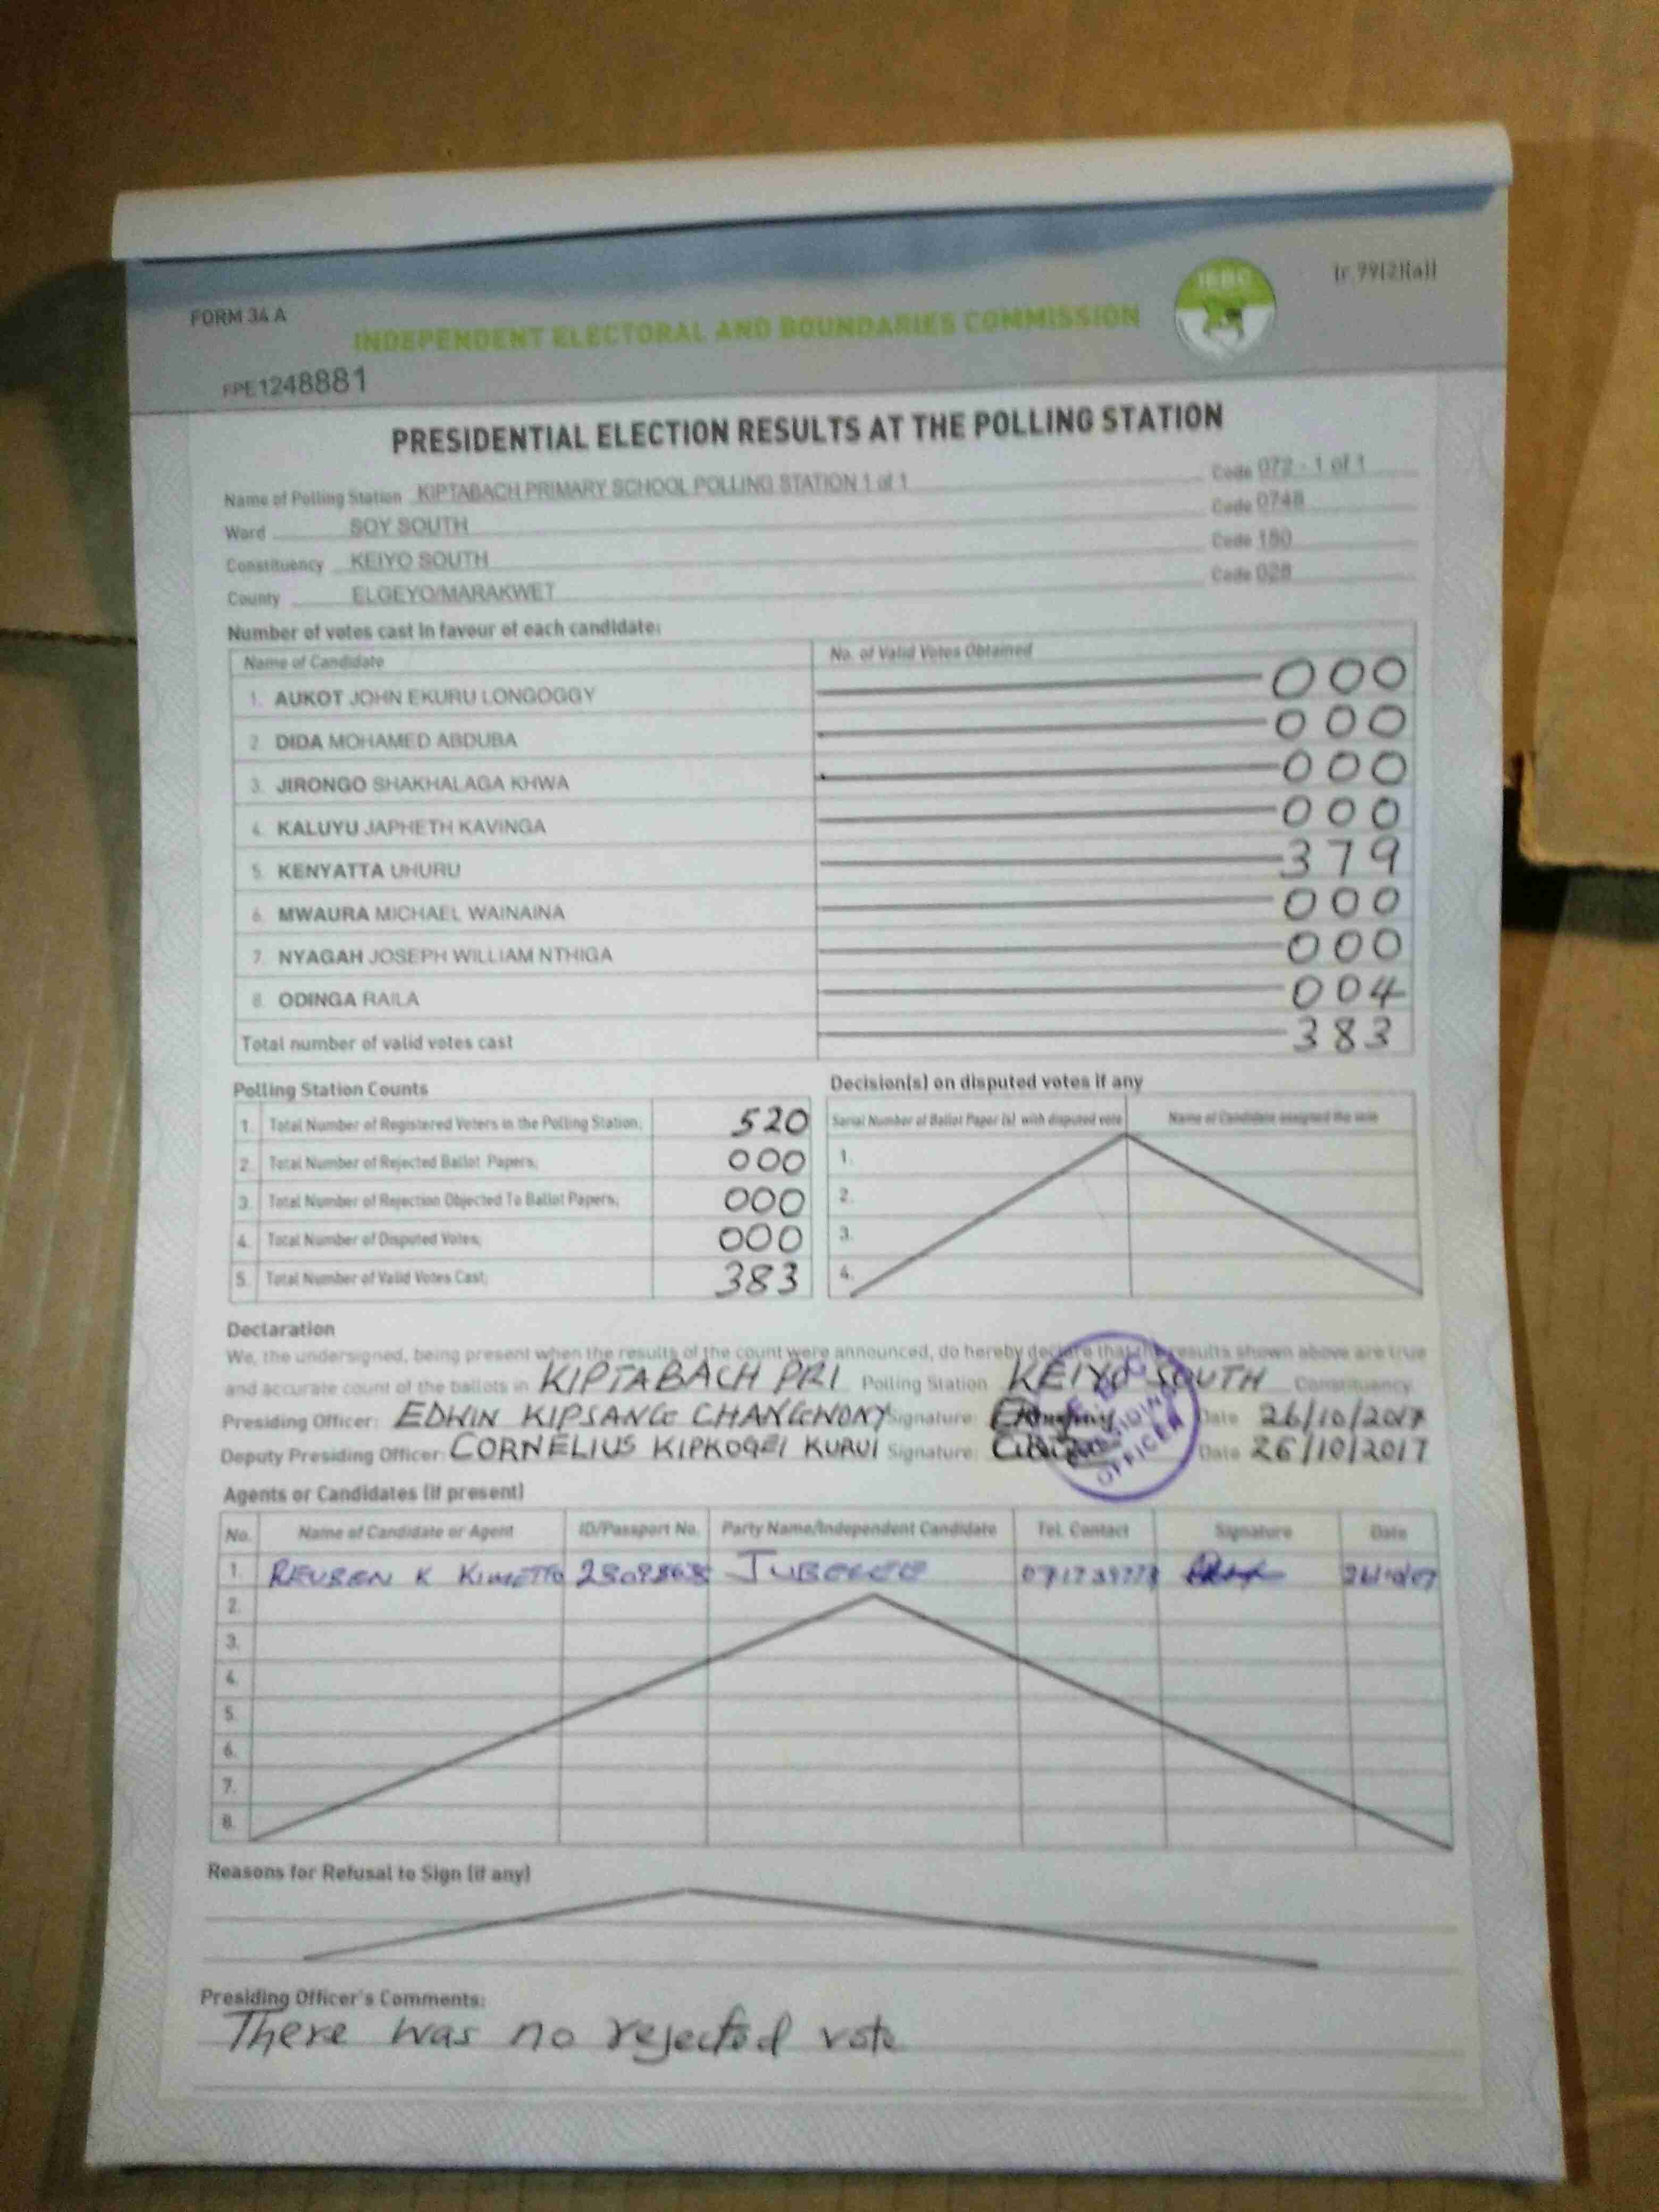 (r.99(2)(a))
FORM 34 A
IEBC
INDEPENDENT ELECTORAL AND BOUNDARIES COMMISSION
FPE1248881
PRESIDENTIAL ELECTION RESULTS AT THE POLLING STATION
Name of Polling Station KIPTABACH PRIMARY SCHOOL POLLING STATION 1 of 1 Code 072 - 1 of 1
Ward SOY SOUTH Code 0748
Constituency KEIYO SOUTH Code 150
County ELGEYO/MARAKWET Code 028
Number of votes cast in favour of each candidate:
Name of Candidate No. of Valid Votes Obtained
1. AUKOT JOHN EKURU LONGOGGY 000
2. DIDA MOHAMED ABDUBA 000
3. JIRONGO SHAKHALAGA KHWA 000
4. KALUYU JAPHETH KAVINGA 000
5. KENYATTA UHURU 379
6. MWAURA MICHAEL WAINAINA 000
7. NYAGAH JOSEPH WILLIAM NTHIGA 000
8. ODINGA RAILA 004
Total number of valid votes cast 383
Polling Station Counts
1. Total Number of Registered Voters in the Polling Station; 520
2. Total Number of Rejected Ballot Papers; 000
3. Total Number of Rejection Objected To Ballot Papers; 000
4. Total Number of Disputed Votes; 000
5. Total Number of Valid Votes Cast; 383
Decision(s) on disputed votes if any
Serial Number of Ballot Paper (s) with disputed vote Name of Candidate assigned the vote
1.
2.
3.
4.
Declaration
We, the undersigned, being present when the results of the count were announced, do hereby declare that the results shown above are true
and accurate count of the ballots in KIPTABACH PRI Polling Station KEIYO SOUTH Constituency
Presiding Officer: EDWIN KIPSANG CHANGWONY Signature: Date 26/10/2017
Deputy Presiding Officer: CORNELIUS KIPKOGEI KURUI Signature: Date 26/10/2017
PRESIDING OFFICER
Agents or Candidates (if present)
No. Name of Candidate or Agent ID/Passport No. Party Name/Independent Candidate Tel. Contact Signature Date
1. REUBEN K KIMETTO JUBELEE
2.
3.
4.
5.
6.
7.
8.
Reasons for Refusal to Sign (if any)
Presiding Officer's Comments:
There was no rejected vote